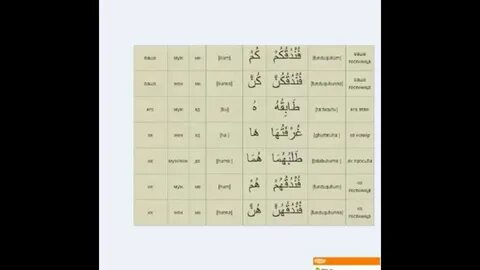 ваша муж. мн. [kum] كُمْ فُنْدُقُكُمْ [funduqukum] ваша гостиница
ваша жен. мн. [kunna] كُنَّ فُنْدُقُكُنَّ [funduqukunna] ваша гостиница
его муж. ед. [hu] هُ طَابِقُهُ [ṭa:biquhu] его этаж
ее жен. ед. [ha:] هَا غُرْفَتُهَا [ghurfatuha:] ее номер
их муж/жен дв. [huma:] هُمَا طَلَبُهُمَا [ṭalabuhuma:] их просьба
их муж. мн. [hum] هُمْ فُنْدُقُهُمْ [funduquhum] их гостиница
их жен. мн. [hunna] هُنَّ فُنْدُقُهُنَّ [funduquhunna] их гостиница